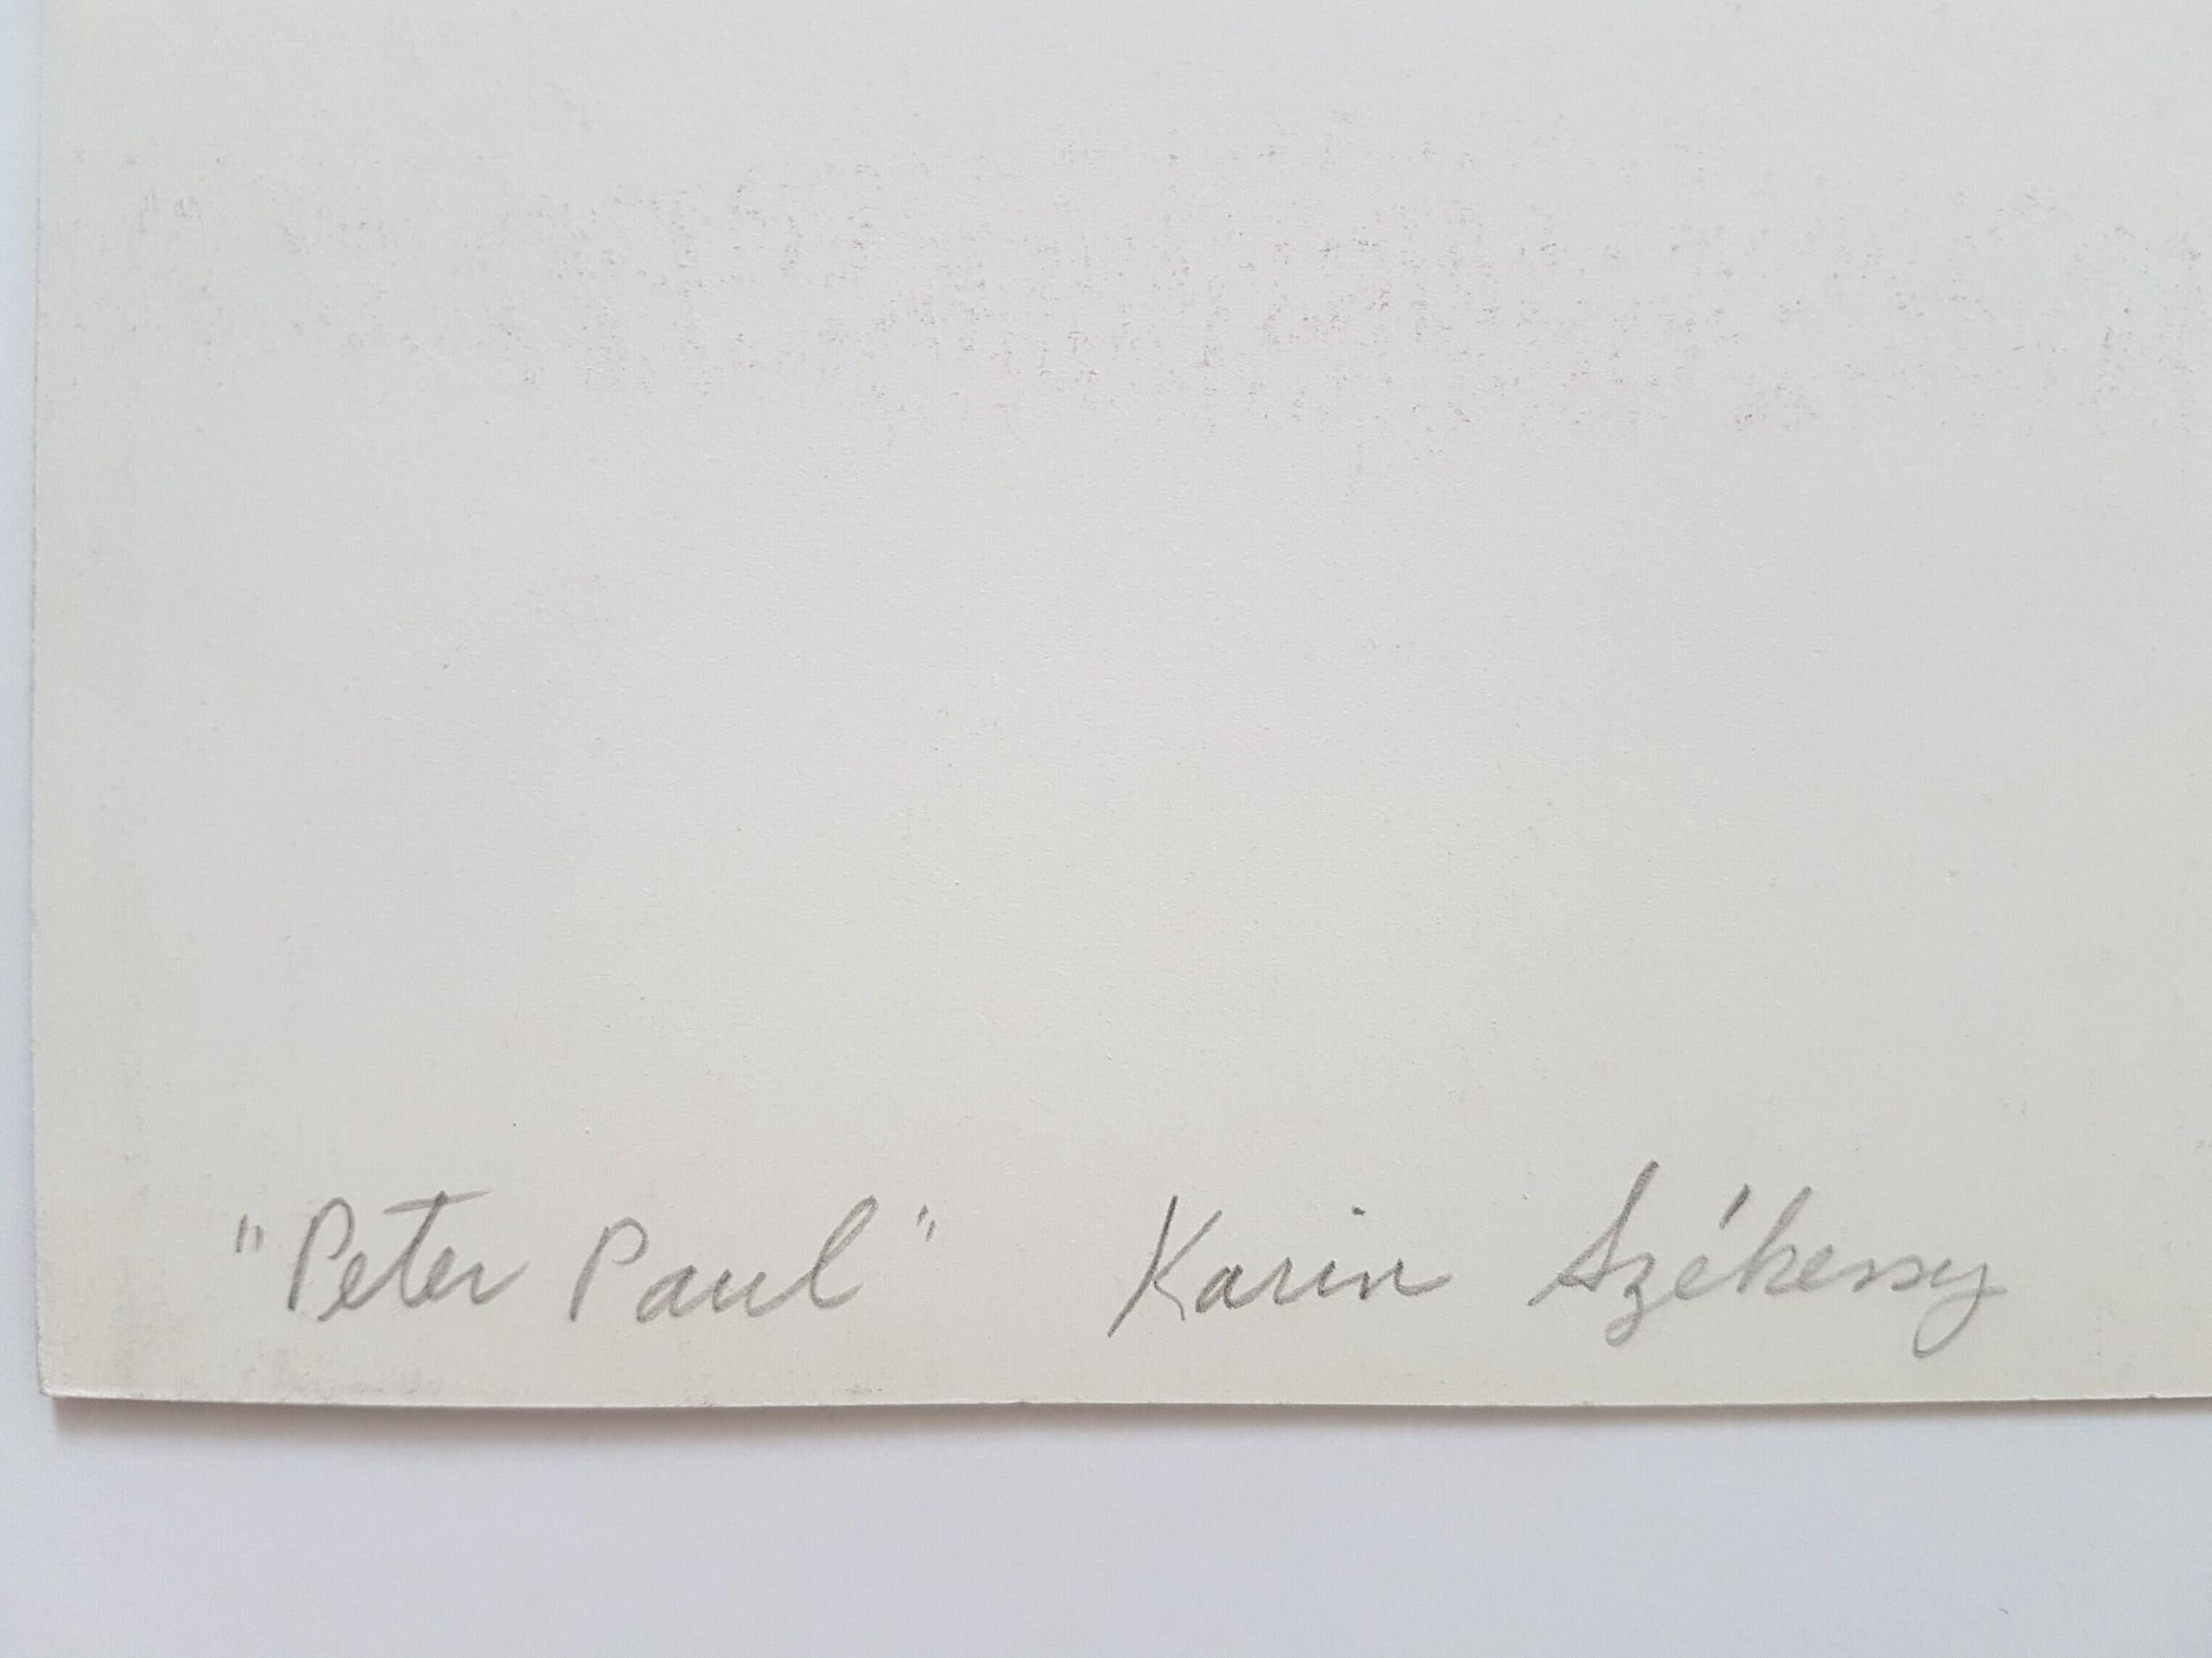 "Peter Paul" Karin Székessy